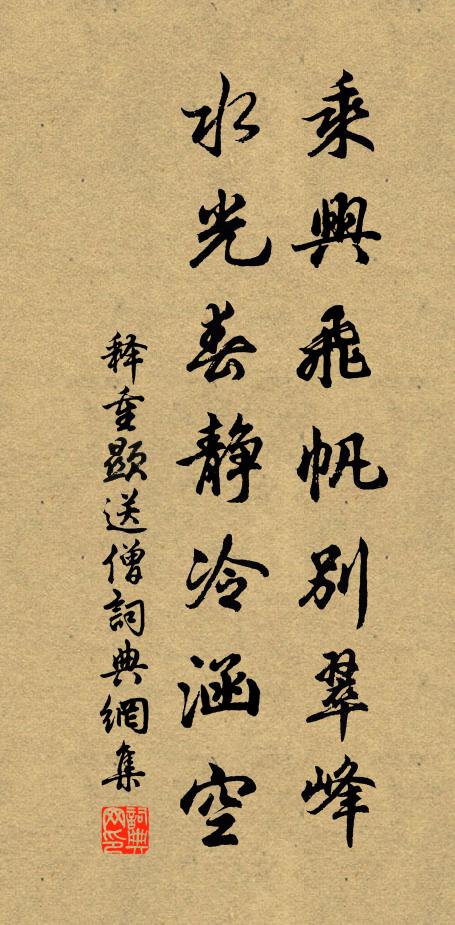 乘興飛帆別翠峰
水光春靜冷涵空
释重顯送僧詞典網集
詞典网印